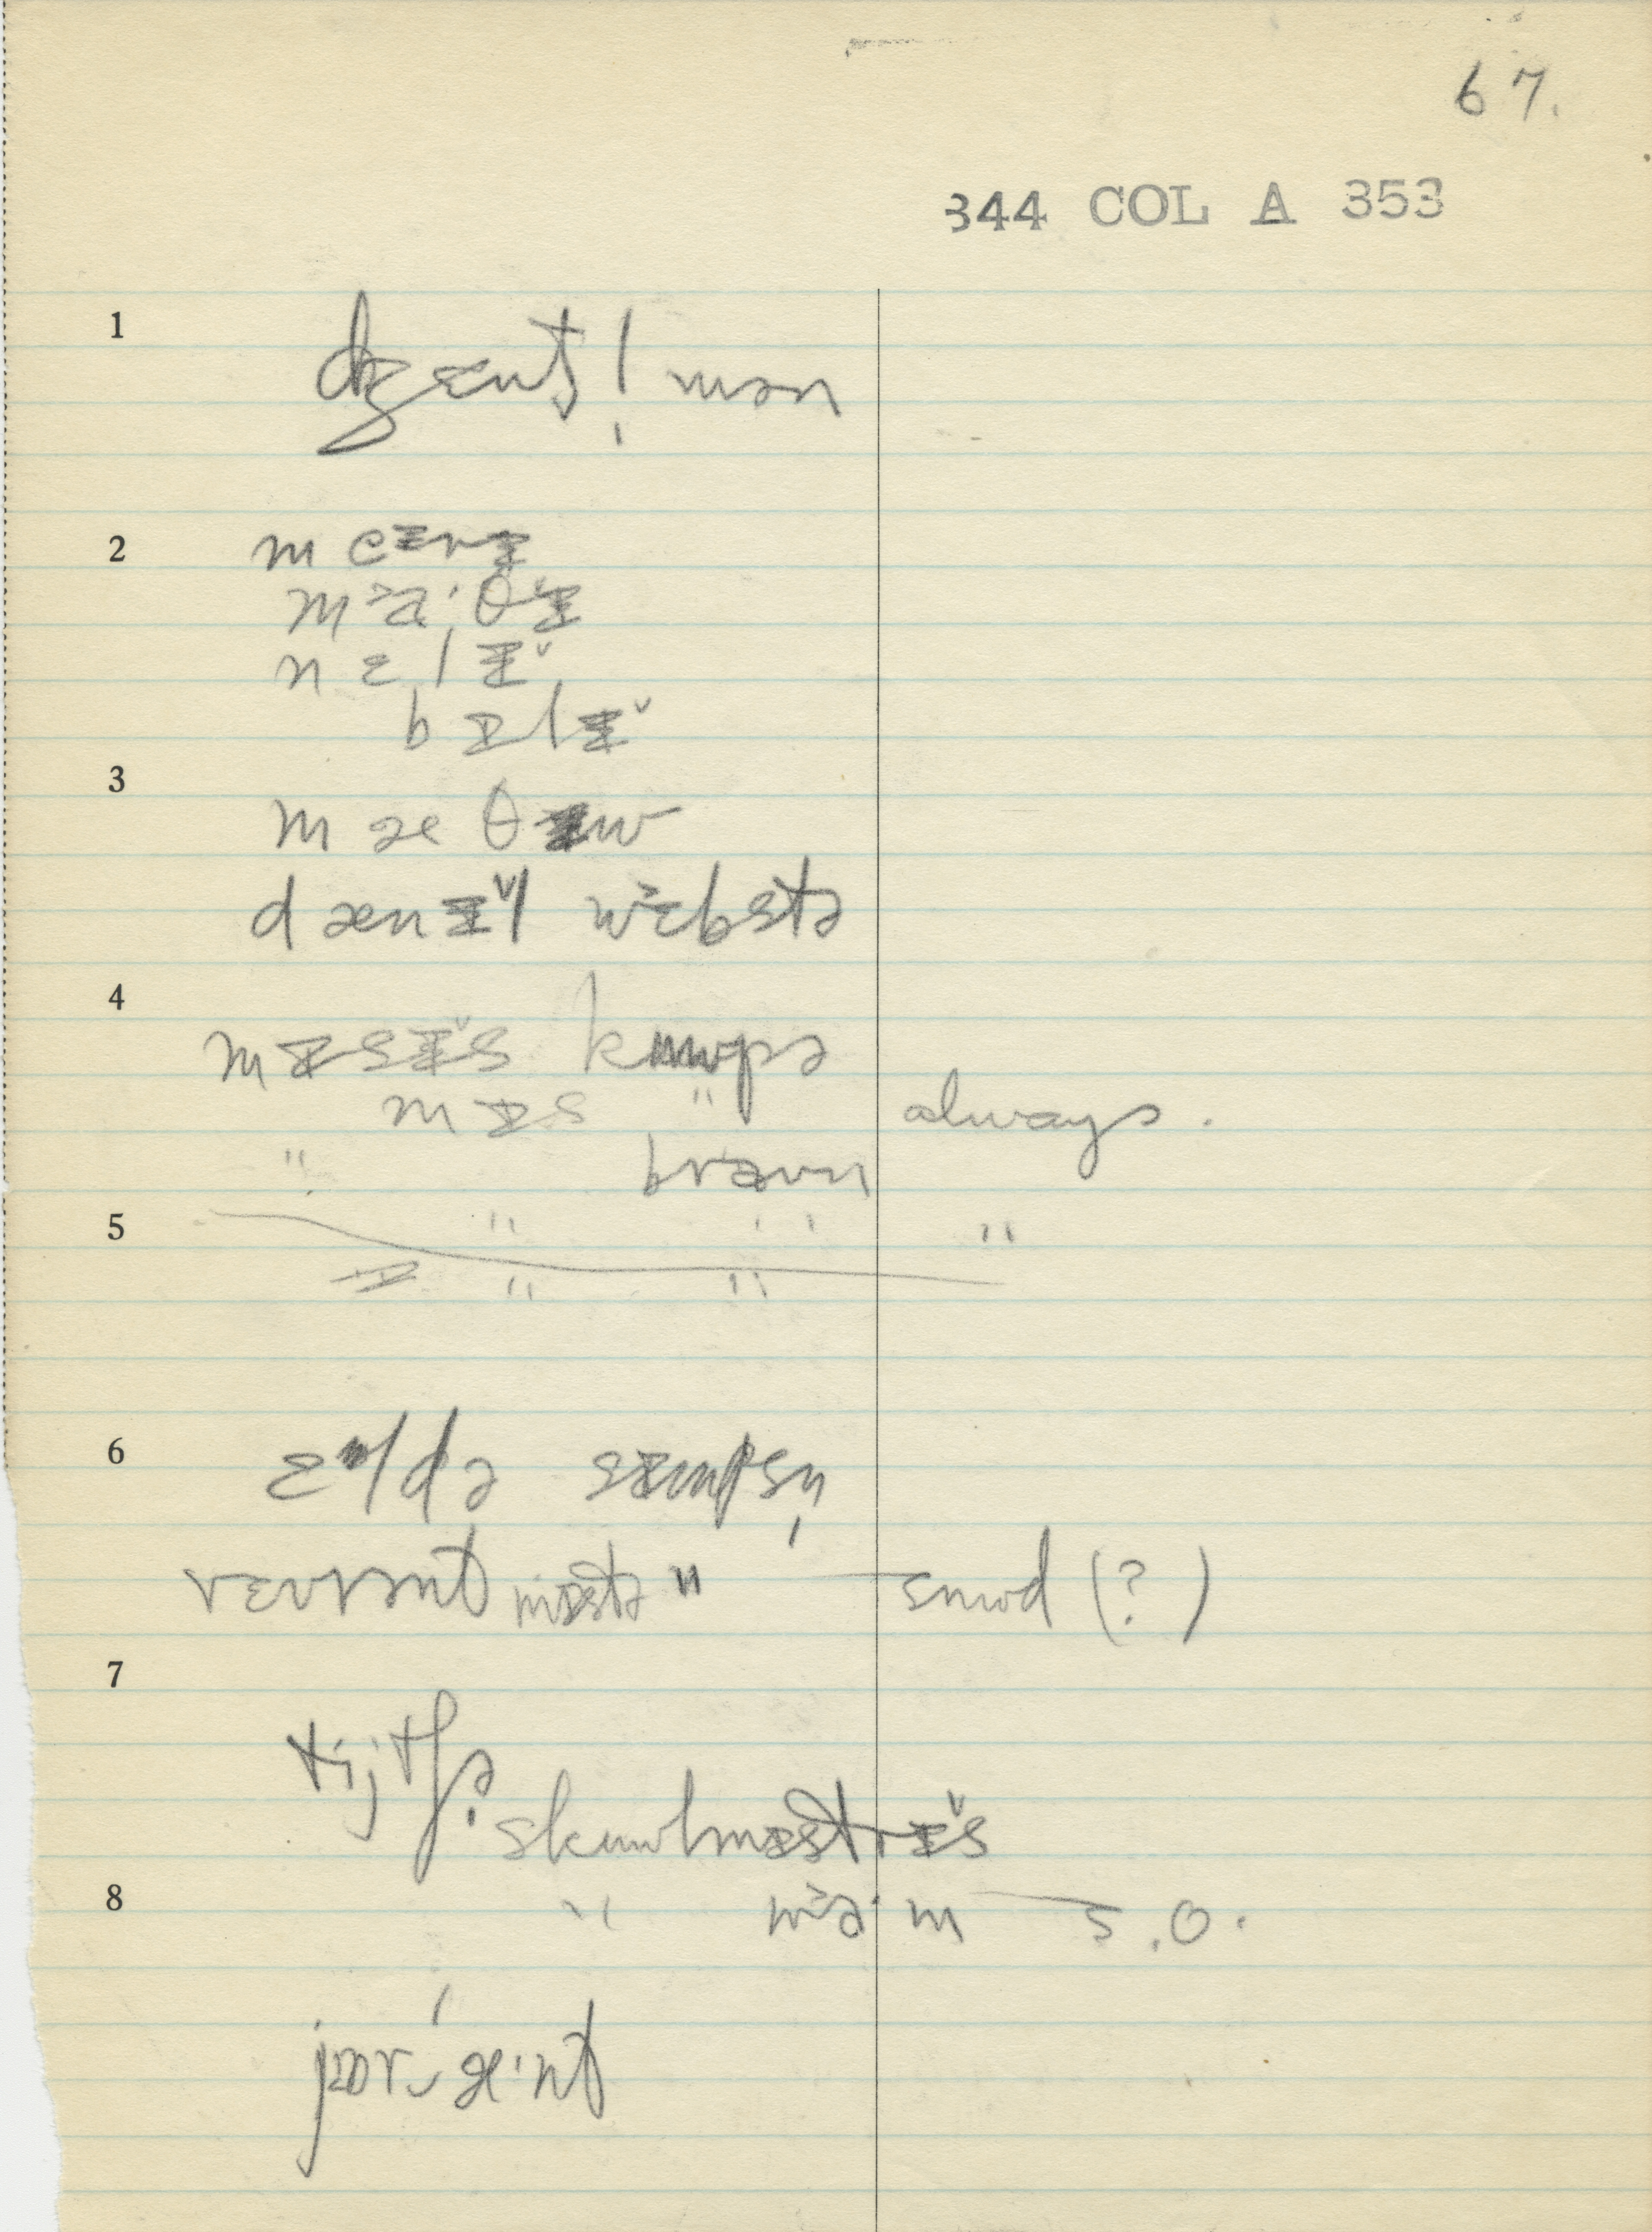 67.
344 COL A 353
1
dʒɛntl̩mən
2
mɛərɪ
mɑ·θɪ̆
nɛlɪ̆
bɪlɪ̆
3
mæθɪw
dænɪ̆l wɛbstə
4
mɪsɪ̆s kuwpə
mɪs " always.
" brɑwn
5
" " "
ɪ " "
6
ɛldə sɪmpsn̩
rɛvrənt mɪstə " snwd (?)
7
tijtʃə
skuwlmɪstrɪ̆s
8
" mɑ·m s.o.
jɔr æ·nt